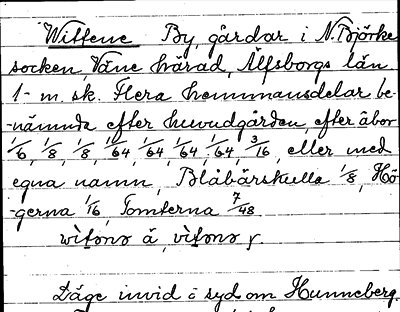 Wittene By, gårdar i N. Björke
socken, Väne härad, Älfsborgs län
1- m. sk. Flera hemmansdelar be-
-nämnda efter huvudgården, efter åbor
1/6, 1/8, 1/8, 11/64, 1/64, 1/64, 1/64, 3/16, eller med
egna namn, Blåbärskulla 1/8, Hö-
-gerna 1/16, Tomterna 7/48.
Läge invid å syd om Hunneberg.